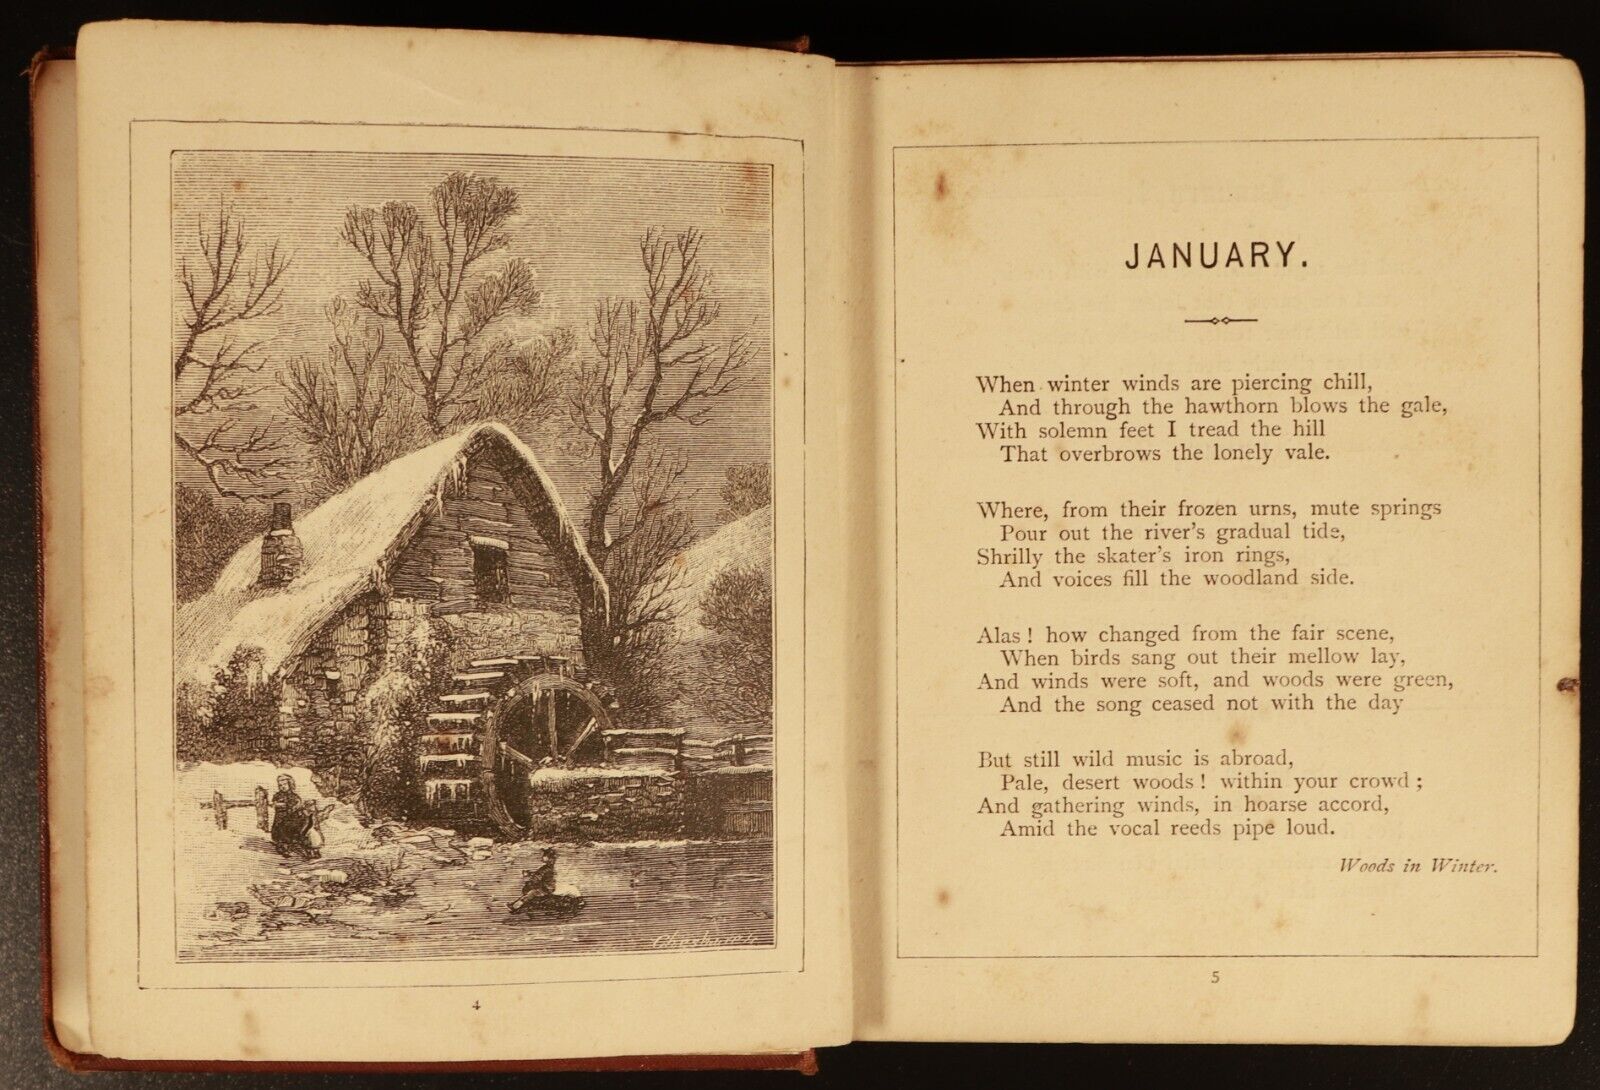 4
JANUARY.
When winter winds are piercing chill,
And through the hawthorn blows the gale,
With solemn feet I tread the hill
That overbrows the lonely vale.
Where, from their frozen urns, mute springs
Pour out the river's gradual tide,
Shrilly the skater's iron rings,
And voices fill the woodland side.
Alas ! how changed from the fair scene,
When birds sang out their mellow lay,
And winds were soft, and woods were green,
And the song ceased not with the day
But still wild music is abroad,
Pale, desert woods ! within your crowd ;
And gathering winds, in hoarse accord,
Amid the vocal reeds pipe loud.
Woods in Winter.
5